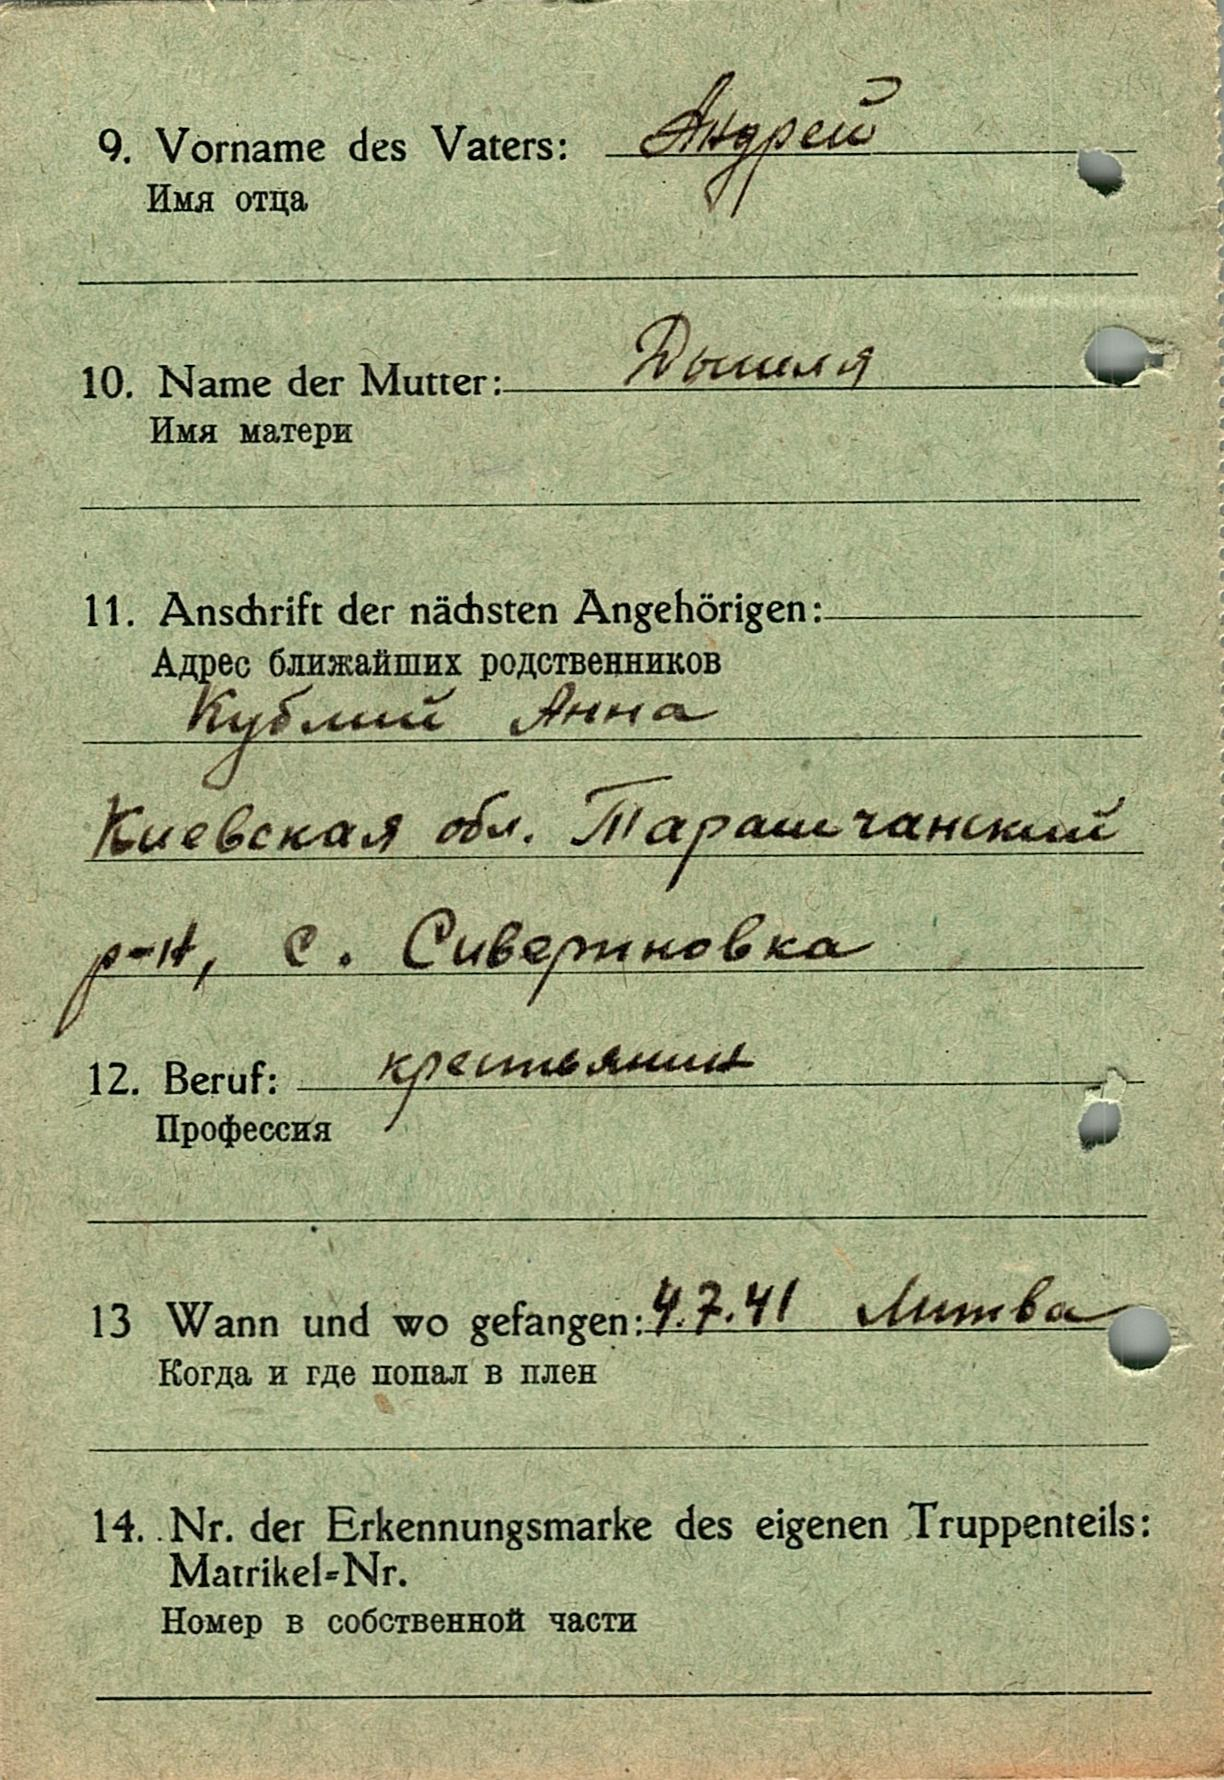 9. Vorname des Vaters: Андрей
Имя отца
10. Name der Mutter:
Имя матери
11. Anschrift der nächsten Angehörigen:
Адрес ближайших родственников
Кублий Анна
Киевская обл. Таращчанский
р-н, с. Сивериновка
12. Beruf: крестьянин
Профессия
13 Wann und wo gefangen: 4.7.41 Литва
Когда и где попал в плен
14. Nr. der Erkennungsmarke des eigenen Truppenteils:
Matrikel-Nr.
Номер в собственной части